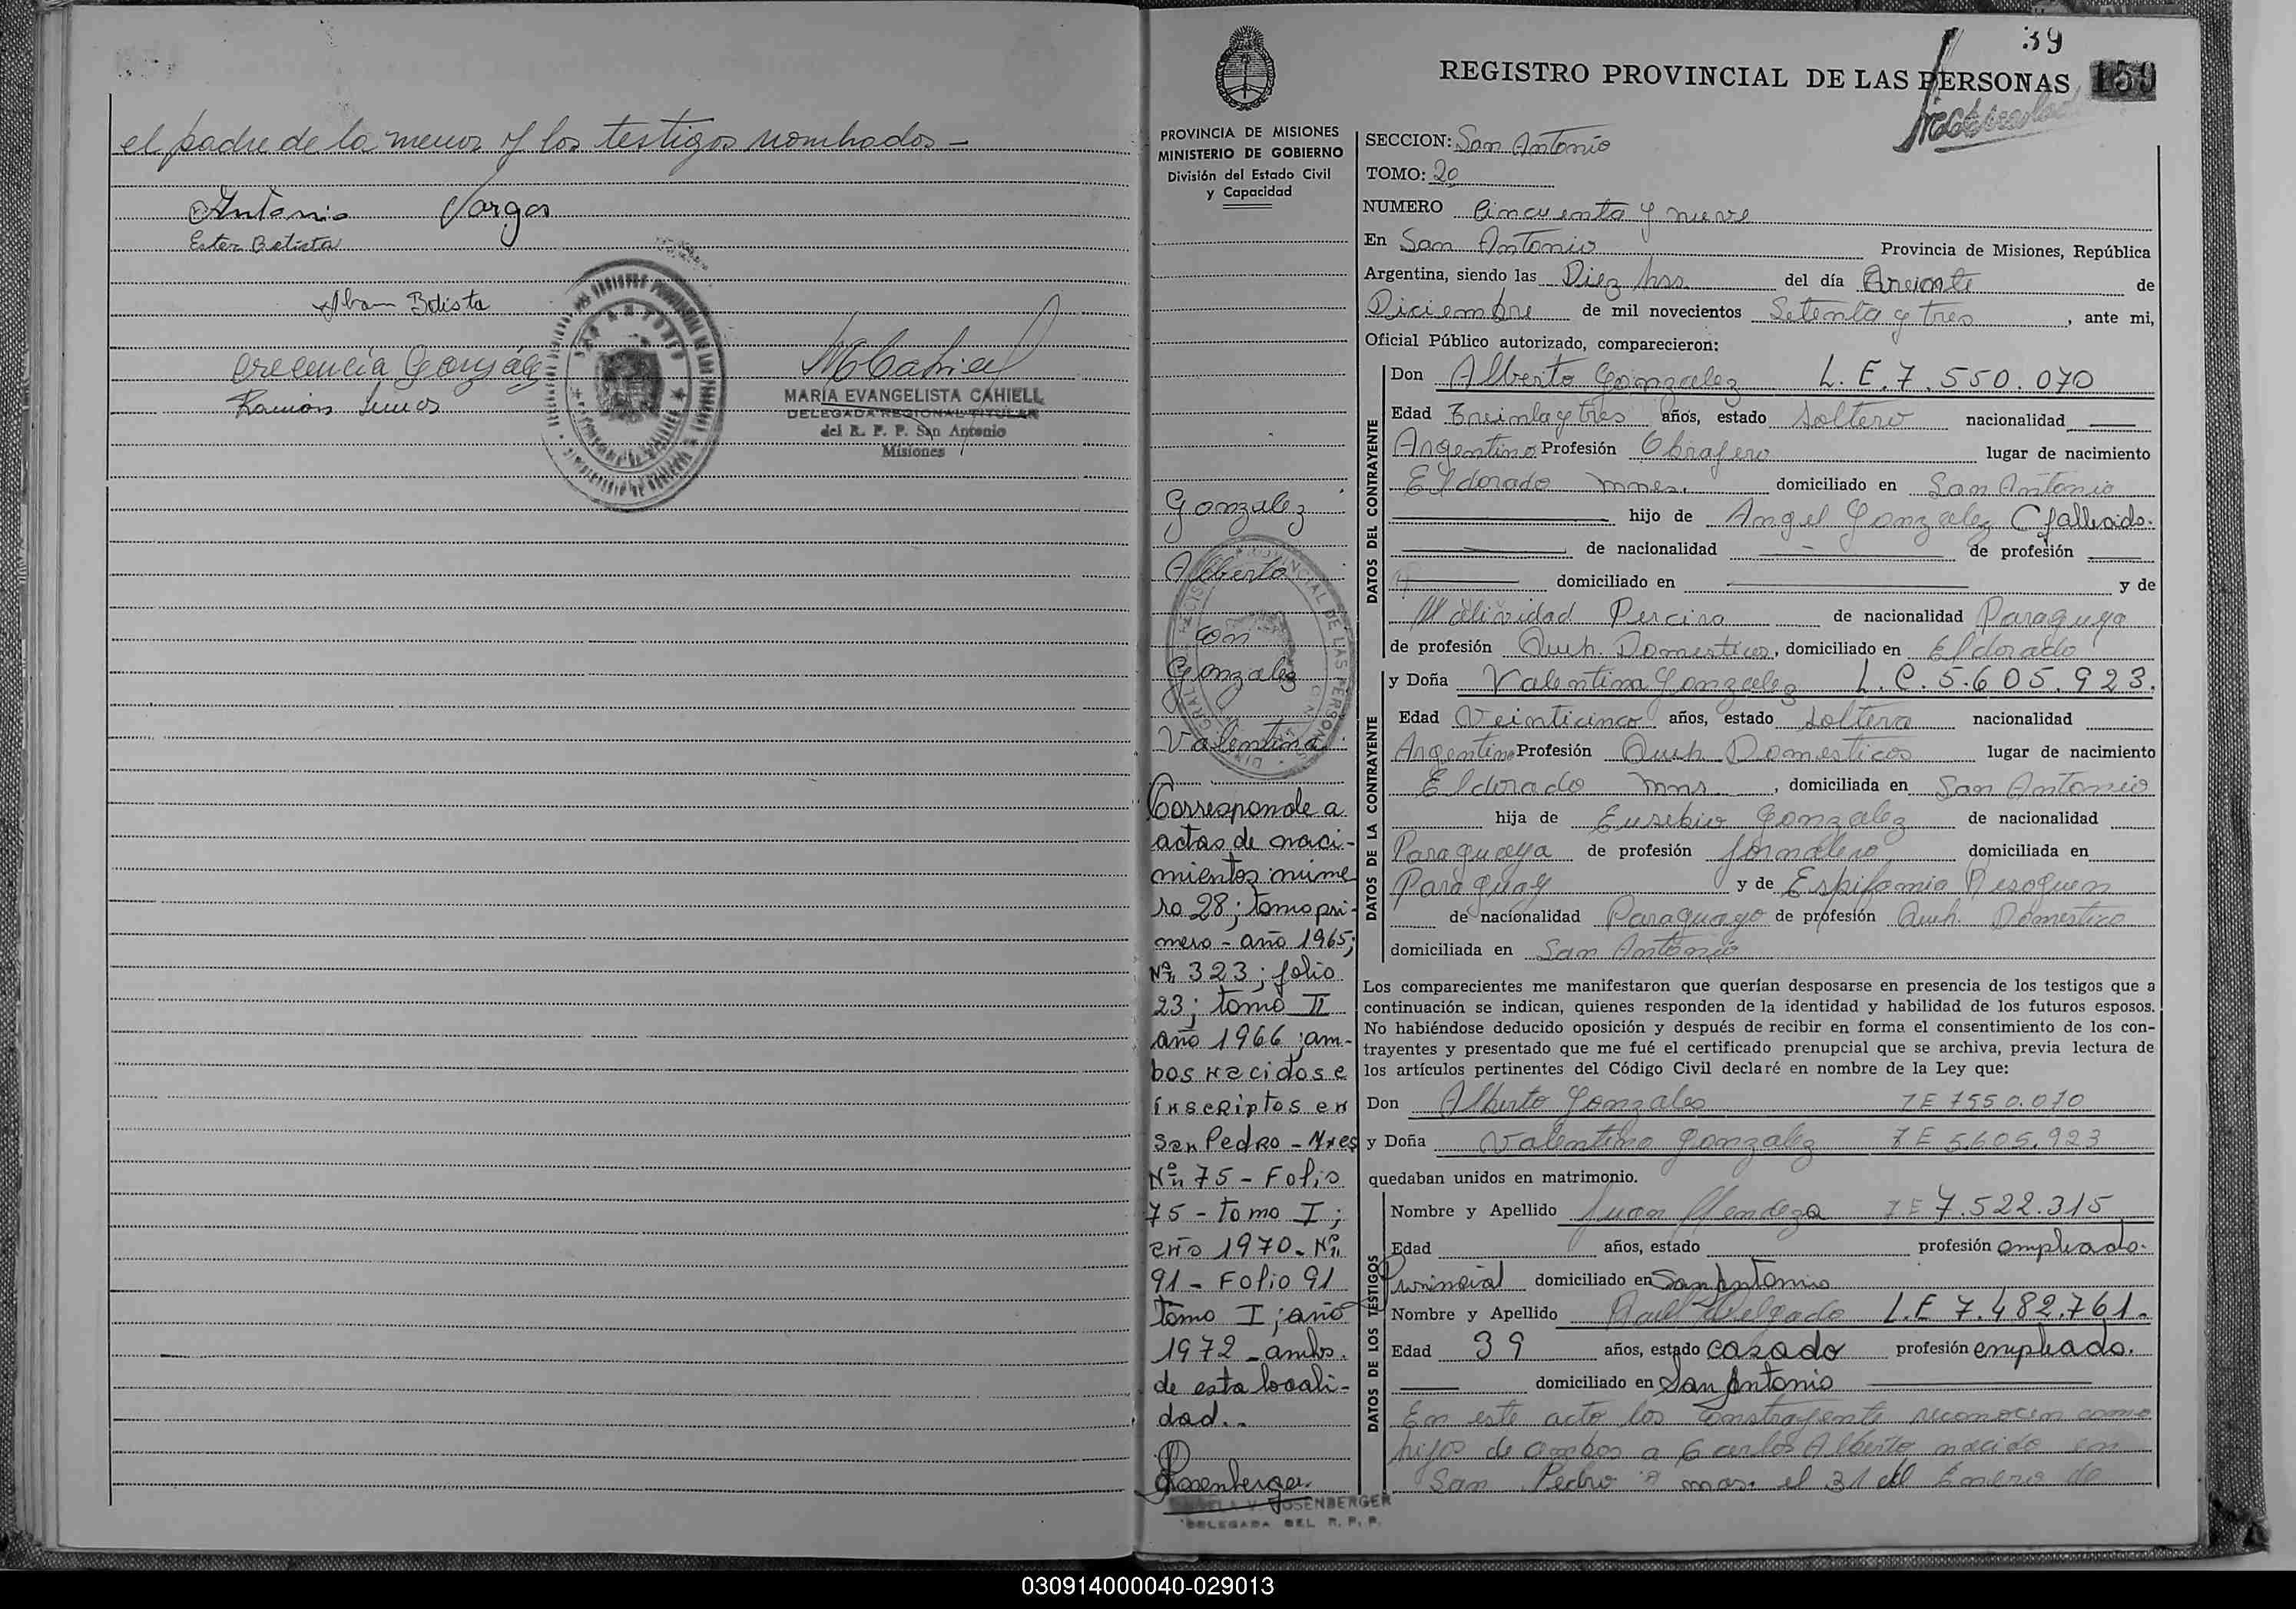 el padre de la menor y los testigos nombrados -
Antonio Vargas
Ester Batista
Alban Batista
Crecencia Gonzále
Ramón
MARIA EVANGELISTA CAHIELL
DELEGADA REGIONAL TITULAR
del R. P. P. San Antonio
Misiones
39
REGISTRO PROVINCIAL DE LAS PERSONAS 159
PROVINCIA DE MISIONES
MINISTERIO DE GOBIERNO
División del Estado Civil
y Capacidad
Gonzalez
Alberto
con
Gonzalez
Valentina
Corresponde a
actas de naci-
mientos núme
ro 28; tomo pri-
mero - año 1965;
Nº 323; folio
23; tomo II
año 1966; am-
bos nacidos e
inscriptos en
San Pedro - Mnes
Nº 75 - Folio
75 - tomo I;
año 1970 - Nº
91 - Folio 91
tomo I; año
1972 - ambos
de esta locali-
dad..
Rosenberger
ROSENBERGER
DELEGADA DEL R. P. P.
SECCION: San Antonio
TOMO: 20
NUMERO Cincuenta y nueve
En San Antonio Provincia de Misiones, República
Argentina, siendo las Diez hss. del día de
Diciembre de mil novecientos Setenta y tres, ante mi,
Oficial Público autorizado, comparecieron:
DATOS DEL CONTRAYENTE
Don Alberto Gonzalez L. E. 7.550.070
Edad Treinta y tres años, estado soltero nacionalidad
Argentino Profesión Obrajero lugar de nacimiento
Eldorado mnes. domiciliado en San Antonio
hijo de Angel Gonzalez (fallecido.
de nacionalidad de profesión
domiciliado en y de
Natividad de nacionalidad Paraguya
de profesión Queh. Domesticos, domiciliado en Eldorado
DATOS DE LA CONTRAYENTE
y Doña Valentina Gonzalez L. C. 5.605.923.
Edad Veinticinco años, estado soltera nacionalidad
Argentina Profesión Queh. Domesticos lugar de nacimiento
Eldorado mns., domiciliada en San Antonio
hija de Eusebio Gonzalez de nacionalidad
Paraguaya de profesión jornalero domiciliada en
Paraguay y de
de nacionalidad Paraguayo de profesión Queh. Domestico
domiciliada en San Antonio
Los comparecientes me manifestaron que querían desposarse en presencia de los testigos que a
continuación se indican, quienes responden de la identidad y habilidad de los futuros esposos.
No habiéndose deducido oposición y después de recibir en forma el consentimiento de los con-
trayentes y presentado que me fué el certificado prenupcial que se archiva, previa lectura de
los artículos pertinentes del Código Civil declaré en nombre de la Ley que:
Don Alberto Gonzales LE 7550.070
y Doña Valentina Gonzalez LE 5.605.923
quedaban unidos en matrimonio.
DATOS DE LOS TESTIGOS
Nombre y Apellido Juan Mendoza LE 7.522.315
Edad años, estado profesión empleado.
Provincial domiciliado en San Antonio
Nombre y Apellido Raul Delgado L.E 7.482.761.
Edad 39 años, estado casado profesión empleado.
domiciliado en San Antonio
En este acto los contrayente reconocen como
hijos de ambos a Carlos Alberto nacido en
San Pedro mns. el 31 de Enero de
030914000040-029013